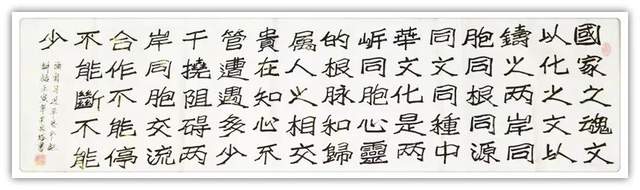 國家之魂文
以化之文以
鑄之两岸同
胞同根同源
同文同種中
華文化是两
岸同胞心靈
的根脉和歸
属人之相交
貴在知心不
管遭遇多少
干撓阻碍两
岸同胞交流
合作不能停
不能斷不能
少